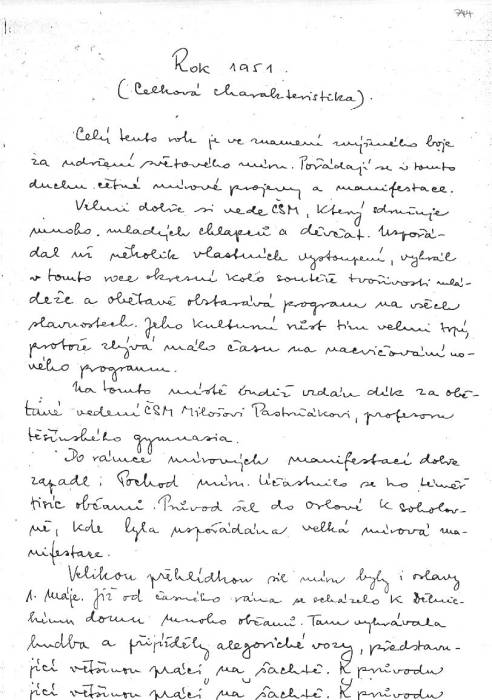 744
Rok 1951.
(Celková charakteristika).
Celý tento rok je ve znamení zvýšeného boje
za udržení světového míru. Pořádají se v tomto
duchu četné mírové projevy a manifestace.
Velmi dobře si vede ČSM, který sdružuje
mnoho mladých chlapců a děvčat. Uspořá-
dal už několik vlastních vystoupení, vyhrál
v tomto roce okresní kolo soutěže tvořivosti mlá-
deže a obětavě obstarává program na všech
slavnostech. Jeho kulturní růst tím velmi trpí,
protože zbývá málo času na nacvičování no-
vého programu.
Na tomto místě budiž vzdán dík za obě-
tavé vedení ČSM Milošovi Pastrňákovi, profesoru
těšínského gymnasia.
Do rámce mírových manifestací dobře
zapadl i Pochod míru. Účastnilo se ho téměř
tisíc občanů. Průvod šel do Orlové k sokolov-
ně, kde byla uspořádána velká mírová ma-
nifestace.
Velikou přehlídkou sil míru byly i oslavy
1. máje. Již od časného rána se scházelo k Dělnic-
kému domu mnoho občanů. Tam vyhrávala
hudba a přijížděly alegorické vozy, představu-
jící většinou práci na šachtě. K průvodu
jící většinou práci na šachtě. K průvodu